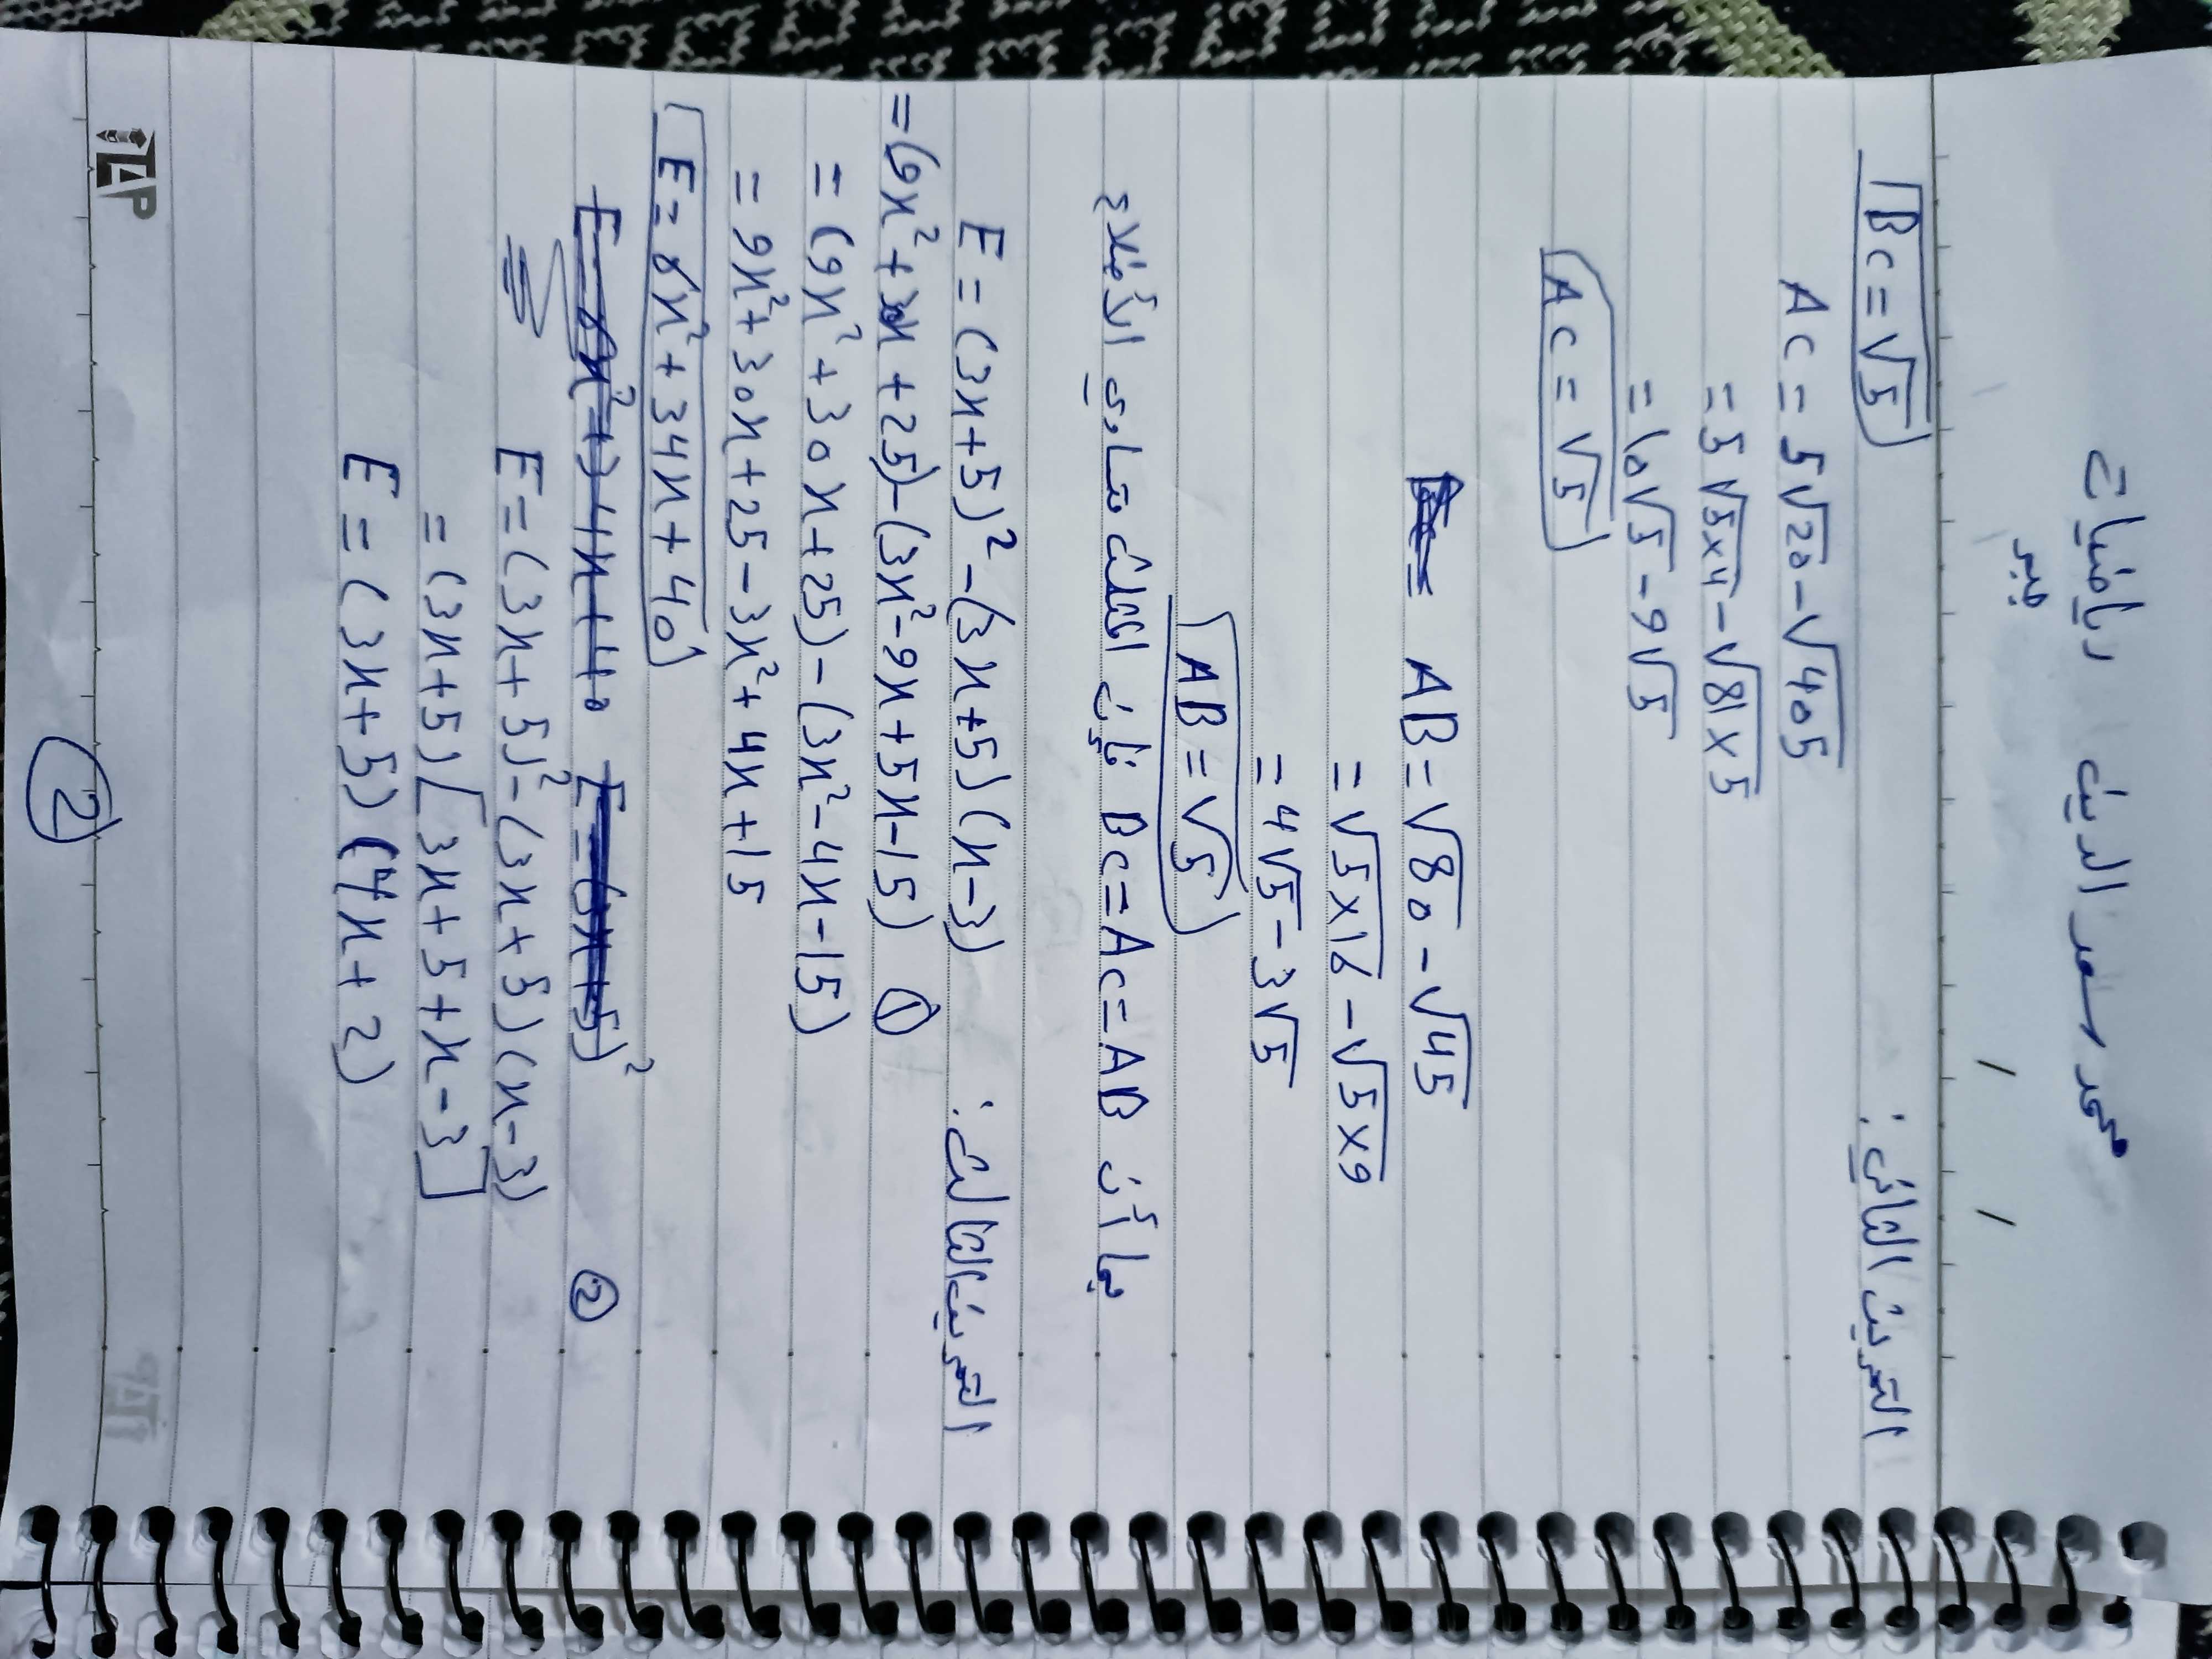 محمد سعد الدين رياضيات
جبر
/ /
التمرين الثاني:
BC = √5
AC = 5√20 - √405
= 5√5×4 - √81×5
= 10√5 - 9√5
AC = √5
AB = √80 - √45
= √5×16 - √5×9
= 4√5 - 3√5
AB = √5
بما أن BC = AC = AB فإن المثلث متساوي الأضلاع
التمرين الثالث:
E = (3x+5)² - (3x+5)(x-3)
= (9x² + 30x + 25) - (3x² - 9x + 5x - 15) ①
= (9x² + 30x + 25) - (3x² - 4x - 15)
= 9x² + 30x + 25 - 3x² + 4x + 15
E = 6x² + 34x + 40
E = 6x² + 34x + 40 ②
E = (3x+5)² - (3x+5)(x-3)
= (3x+5)[3x+5+x-3]
E = (3x+5)(4x+2)
②